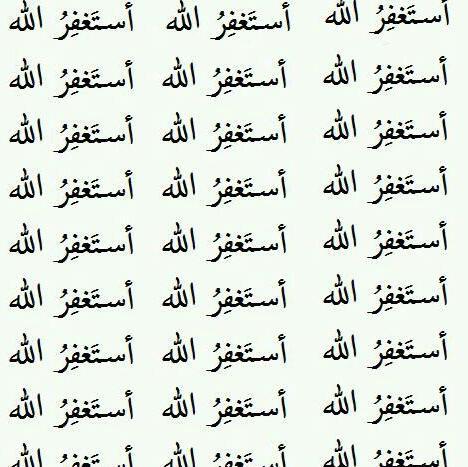 أستَغفِرُ الله أستَغفِرُ الله أستَغفِرُ الله
أستَغفِرُ الله أستَغفِرُ الله أستَغفِرُ الله
أستَغفِرُ الله أستَغفِرُ الله أستَغفِرُ الله
أستَغفِرُ الله أستَغفِرُ الله أستَغفِرُ الله
أستَغفِرُ الله أستَغفِرُ الله أستَغفِرُ الله
أستَغفِرُ الله أستَغفِرُ الله أستَغفِرُ الله
أستَغفِرُ الله أستَغفِرُ الله أستَغفِرُ الله
أستَغفِرُ الله أستَغفِرُ الله أستَغفِرُ الله
أستَغفِرُ الله أستَغفِرُ الله أستَغفِرُ الله